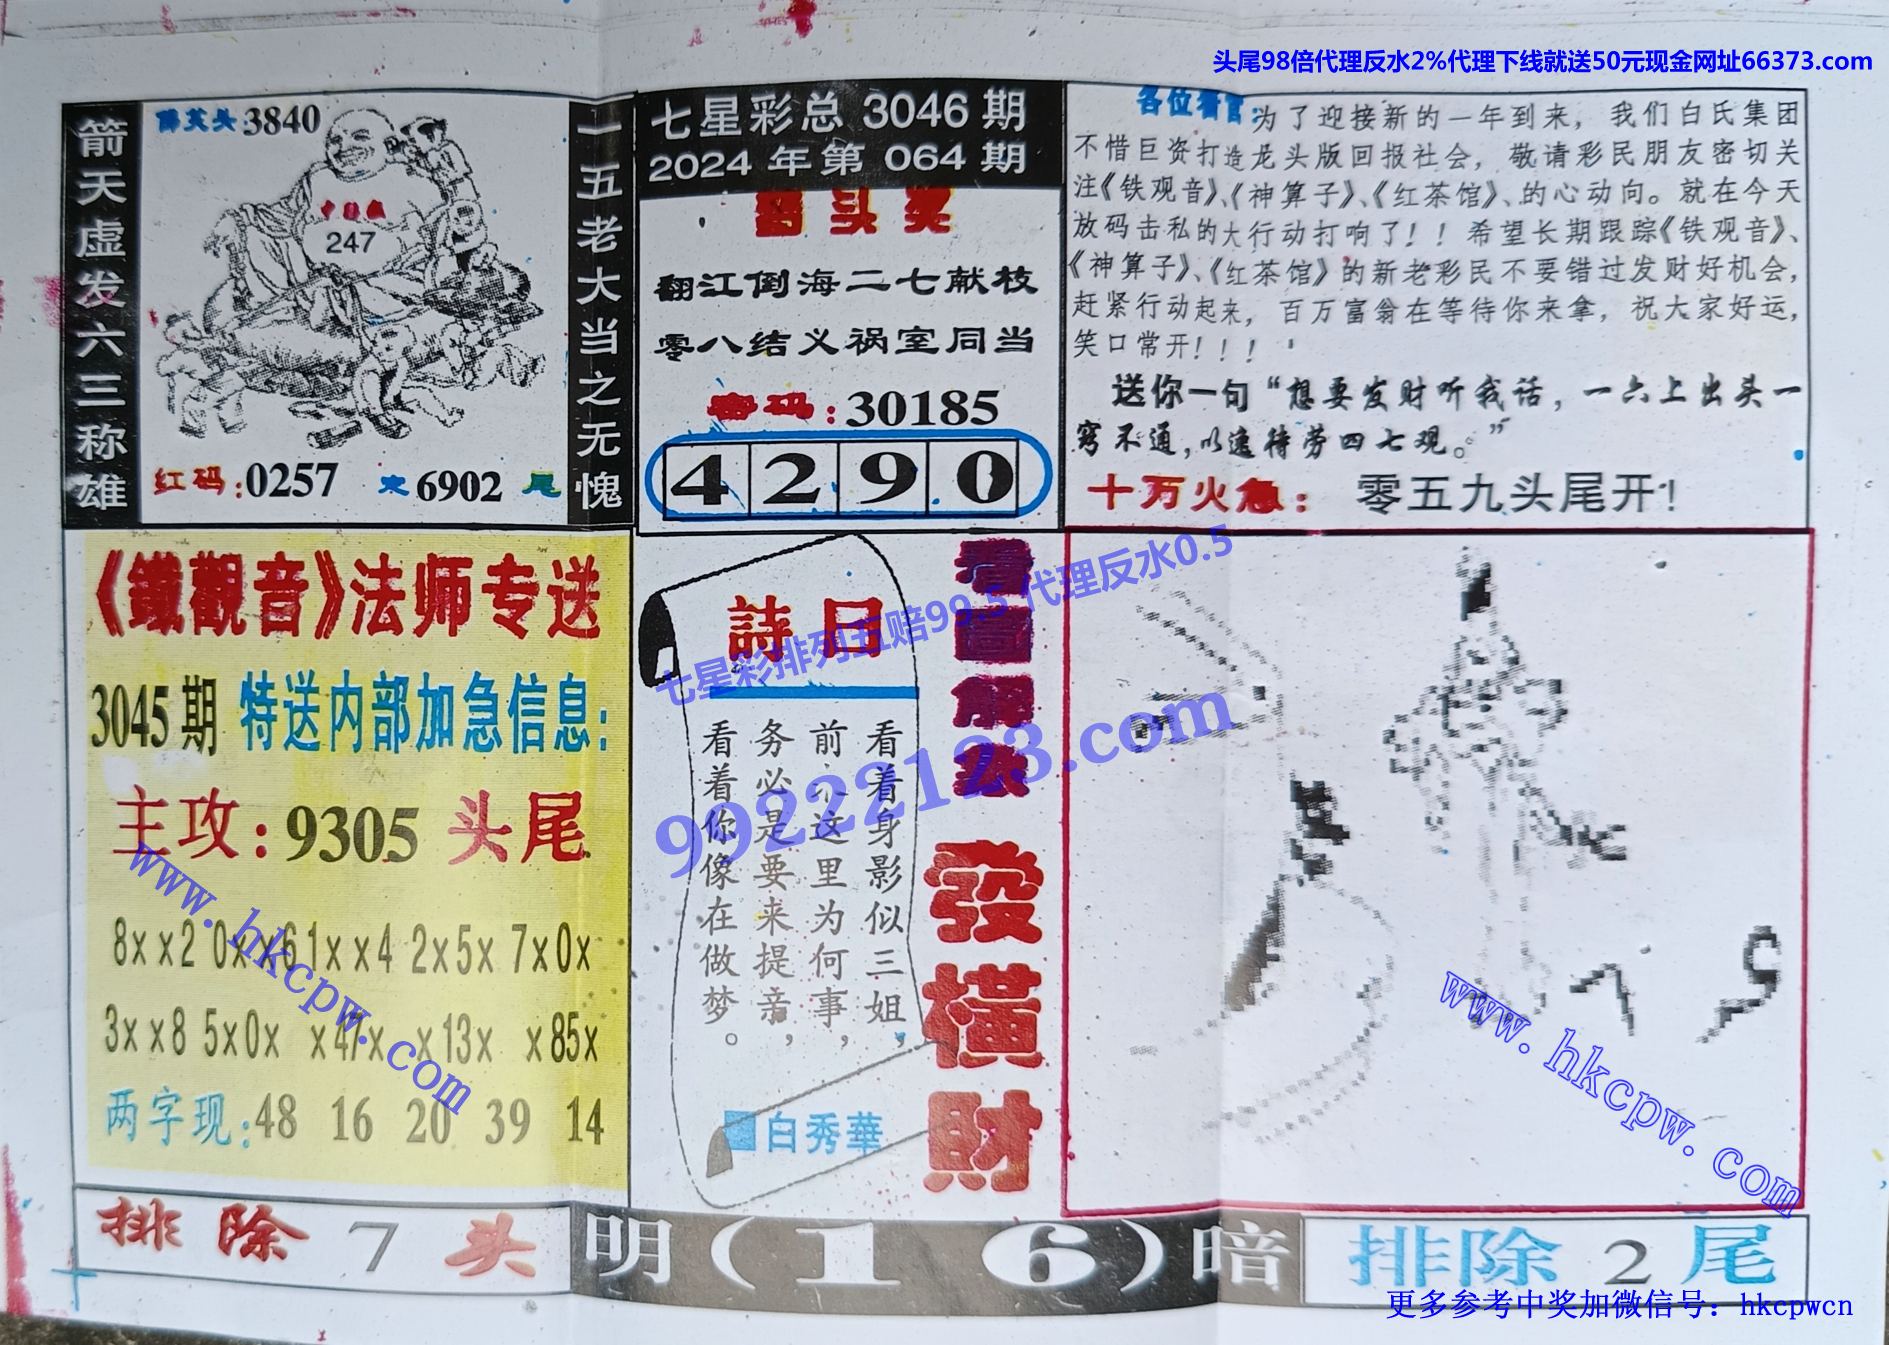 头尾98倍代理反水2%代理下线就送50元现金网址66373.com
箭天虚发六三称雄
3840
247
红码:0257
6902 尾
一五老大当之无愧
七星彩总 3046 期
2024 年第 064 期
翻江倒海二七献枝
零八结义祸室同当
密码:30185
4 2 9 0
各位看官:为了迎接新的一年到来，我们白氏集团
不惜巨资打造龙头版回报社会，敬请彩民朋友密切关
注《铁观音》、《神算子》、《红茶馆》、的心动向。就在今天
放码击私的大行动打响了！！希望长期跟踪《铁观音》、
《神算子》、《红茶馆》的新老彩民不要错过发财好机会，
赶紧行动起来，百万富翁在等待你来拿，祝大家好运，
笑口常开！！！
送你一句“想要发财听我话，一六上出头一
窍不通，以逸待劳四七观。”
十万火急：零五九头尾开！
《鐵觀音》法师专送
3045期 特送内部加急信息:
主攻:9305 头尾
8xx2 0xx6 1xx4 2x5x 7x0x
3xx8 5x0x x47x x13x x85x
两字现:48 16 20 39 14
詩曰
看着身影似三姐，
前来这里为何事，
务必是要来提亲，
看着你像在做梦。
白秀華
看圖解
發橫財
七星彩排列五赔99.5 代理反水0.5
99222123.com
www.hkcpw.com
www.hkcpw.com
排除 7 头
明(16)暗
排除 2 尾
更多参考中奖加微信号：hkcpwcn